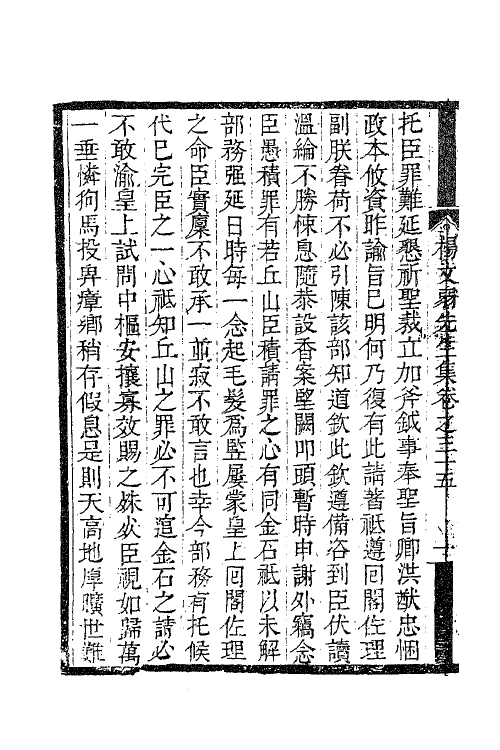 楊文弱先生集卷之三十五
托臣罪難延懇祈聖裁立加斧鉞事奉聖旨卿洪猷忠悃
政本攸資昨諭旨已明何乃復有此請著祗遵囘閣佐理
副朕眷荷不必引陳該部知道欽此欽遵備咨到臣伏讀
溫綸不勝悚息隨恭設香案望闕叩頭暫時申謝外竊念
臣愚積罪有若丘山臣積請罪之心有同金石祗以未解
部務强延日時每一念起毛髮爲豎屢蒙皇上囘閣佐理
之命臣實廪不敢承一並寂不敢言也幸今部務有托候
代已完臣之一心祗知丘山之罪必不可逭金石之請必
不敢渝皇上試問中樞安攘寡效賜之姝必臣視如歸萬
一垂憐狗馬投畀瘴鄉稍存假息是則天高地厚曠世難